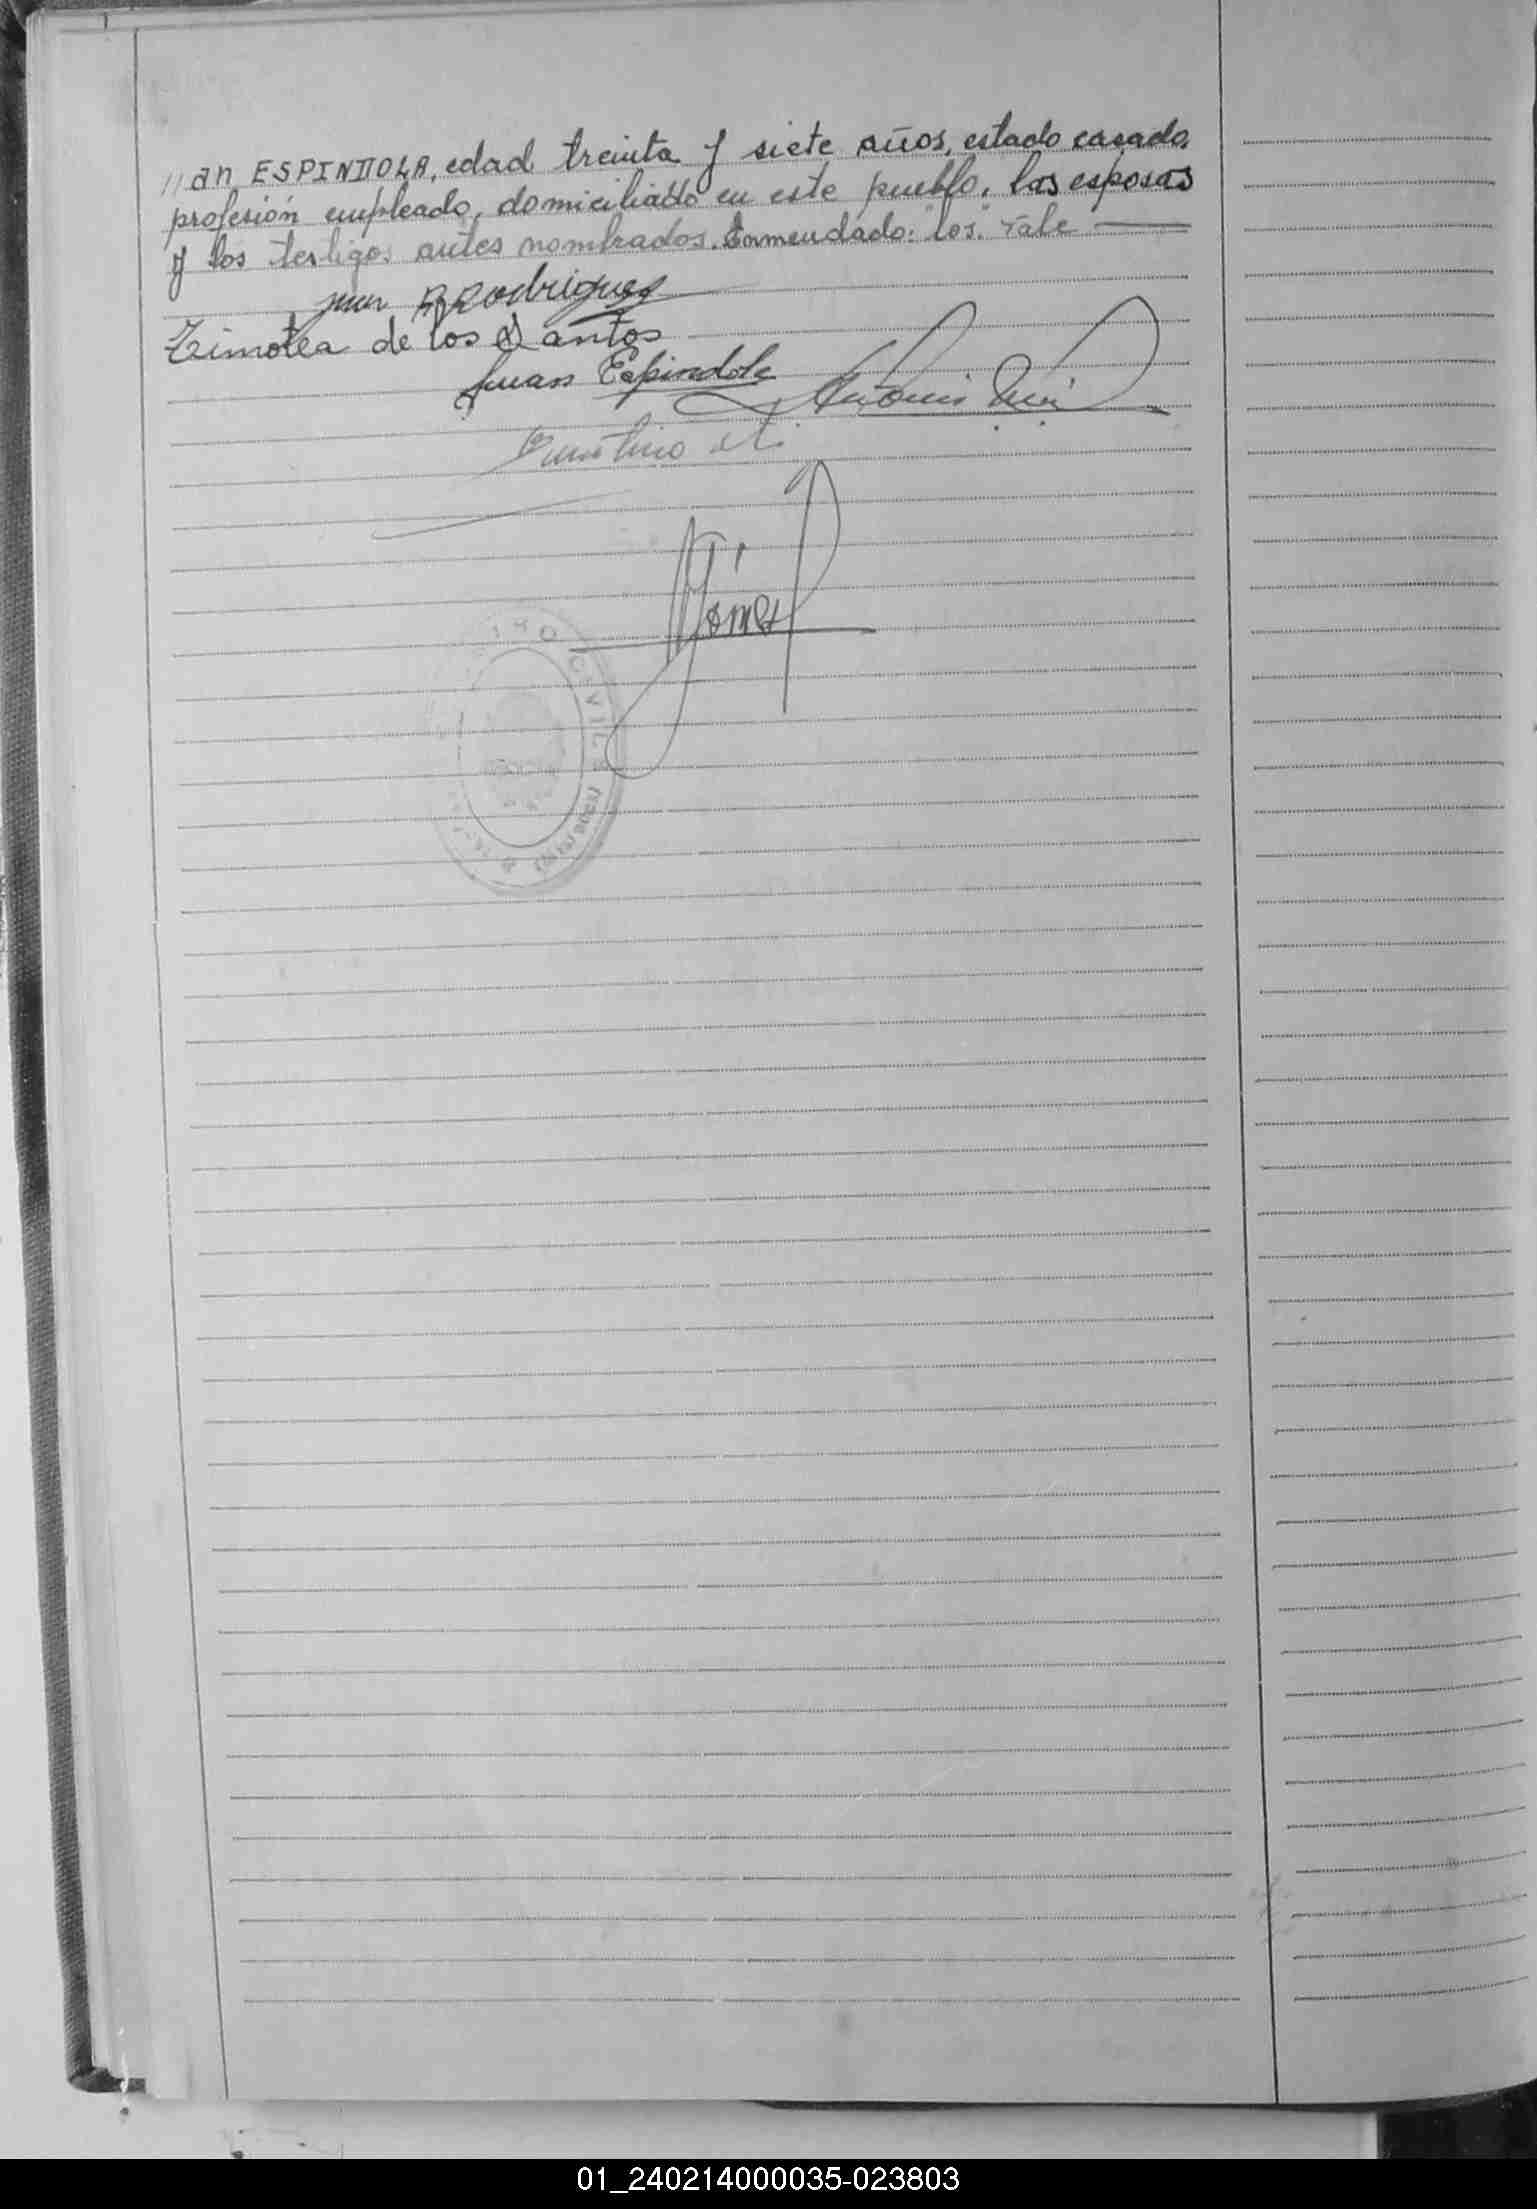 // an ESPINDOLA, edad treinta y siete años, estado casado,
profesión empleado, domiciliado en este pueblo, los esposos
y los testigos antes nombrados. Enmendado: "los". Vale
Juan R Rodriguez
Timotea de los Santos
Juan Espindola
Antonio
Faustino
Gómez
CIVIL
01_240214000035-023803